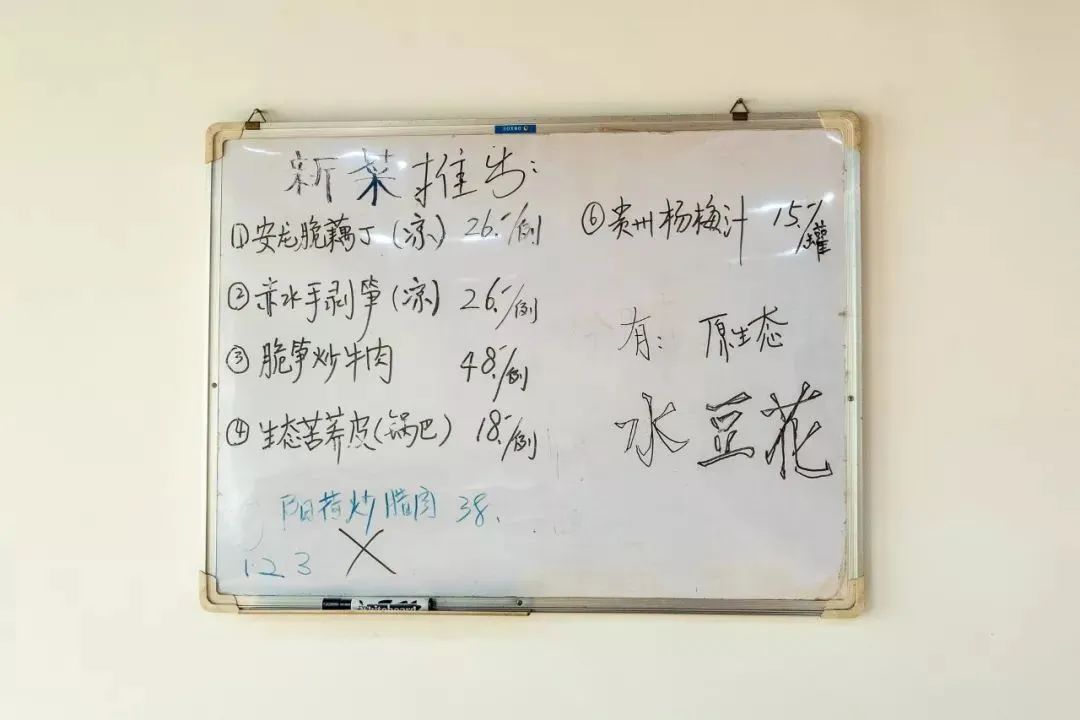 新菜推告:
①安龙脆藕丁(凉) 26.-/例
②赤水手剥笋(凉) 26.-/例
③脆笋炒牛肉 48.-/例
④生态苦荞皮(锅巴) 18.-/例
阳荷炒腊肉 38.
1.2 3 X
⑥贵州杨梅汁 15.-/罐
有: 原生态
水豆花
Whiteboard